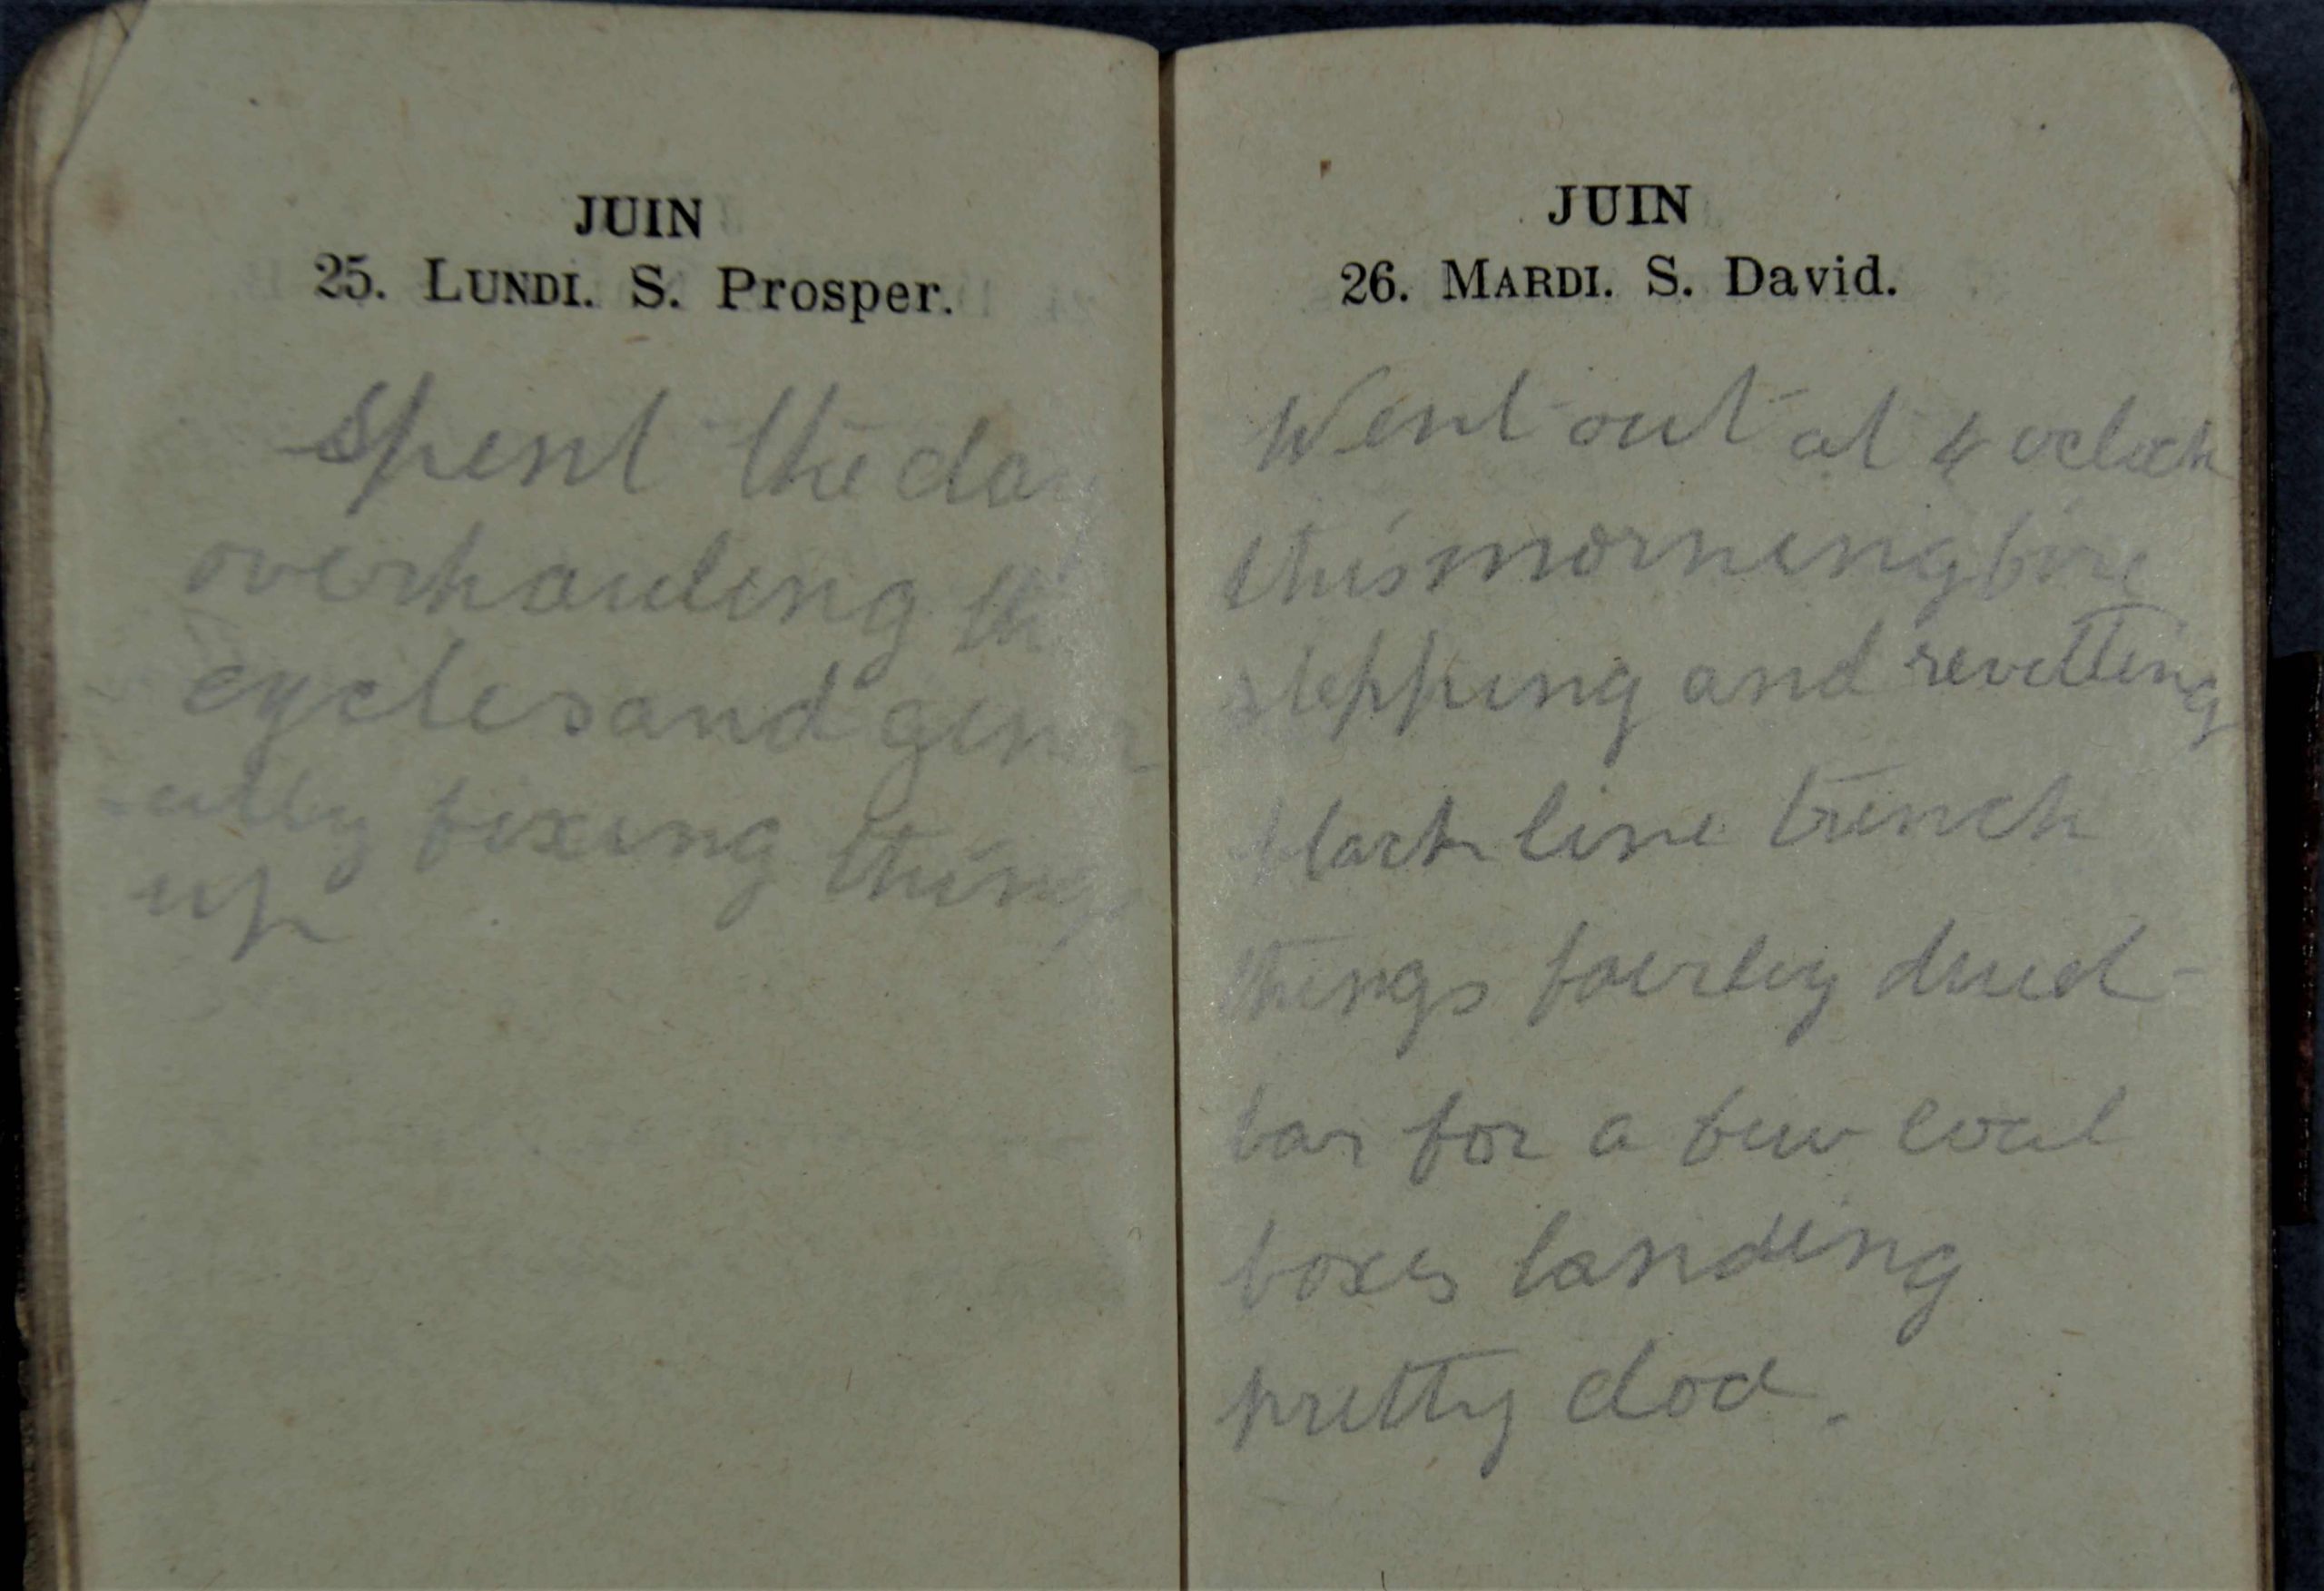 JUIN
25. LUNDI. S. Prosper.
Spent the day
overhauling the
cycles and gener
-ally fixing things
up
JUIN
26. MARDI. S. David.
Went out at 4 oclock
this morning fire
stepping and revetting
black line trench
things fairly quiet
bar for a few coal
boxes landing
pretty